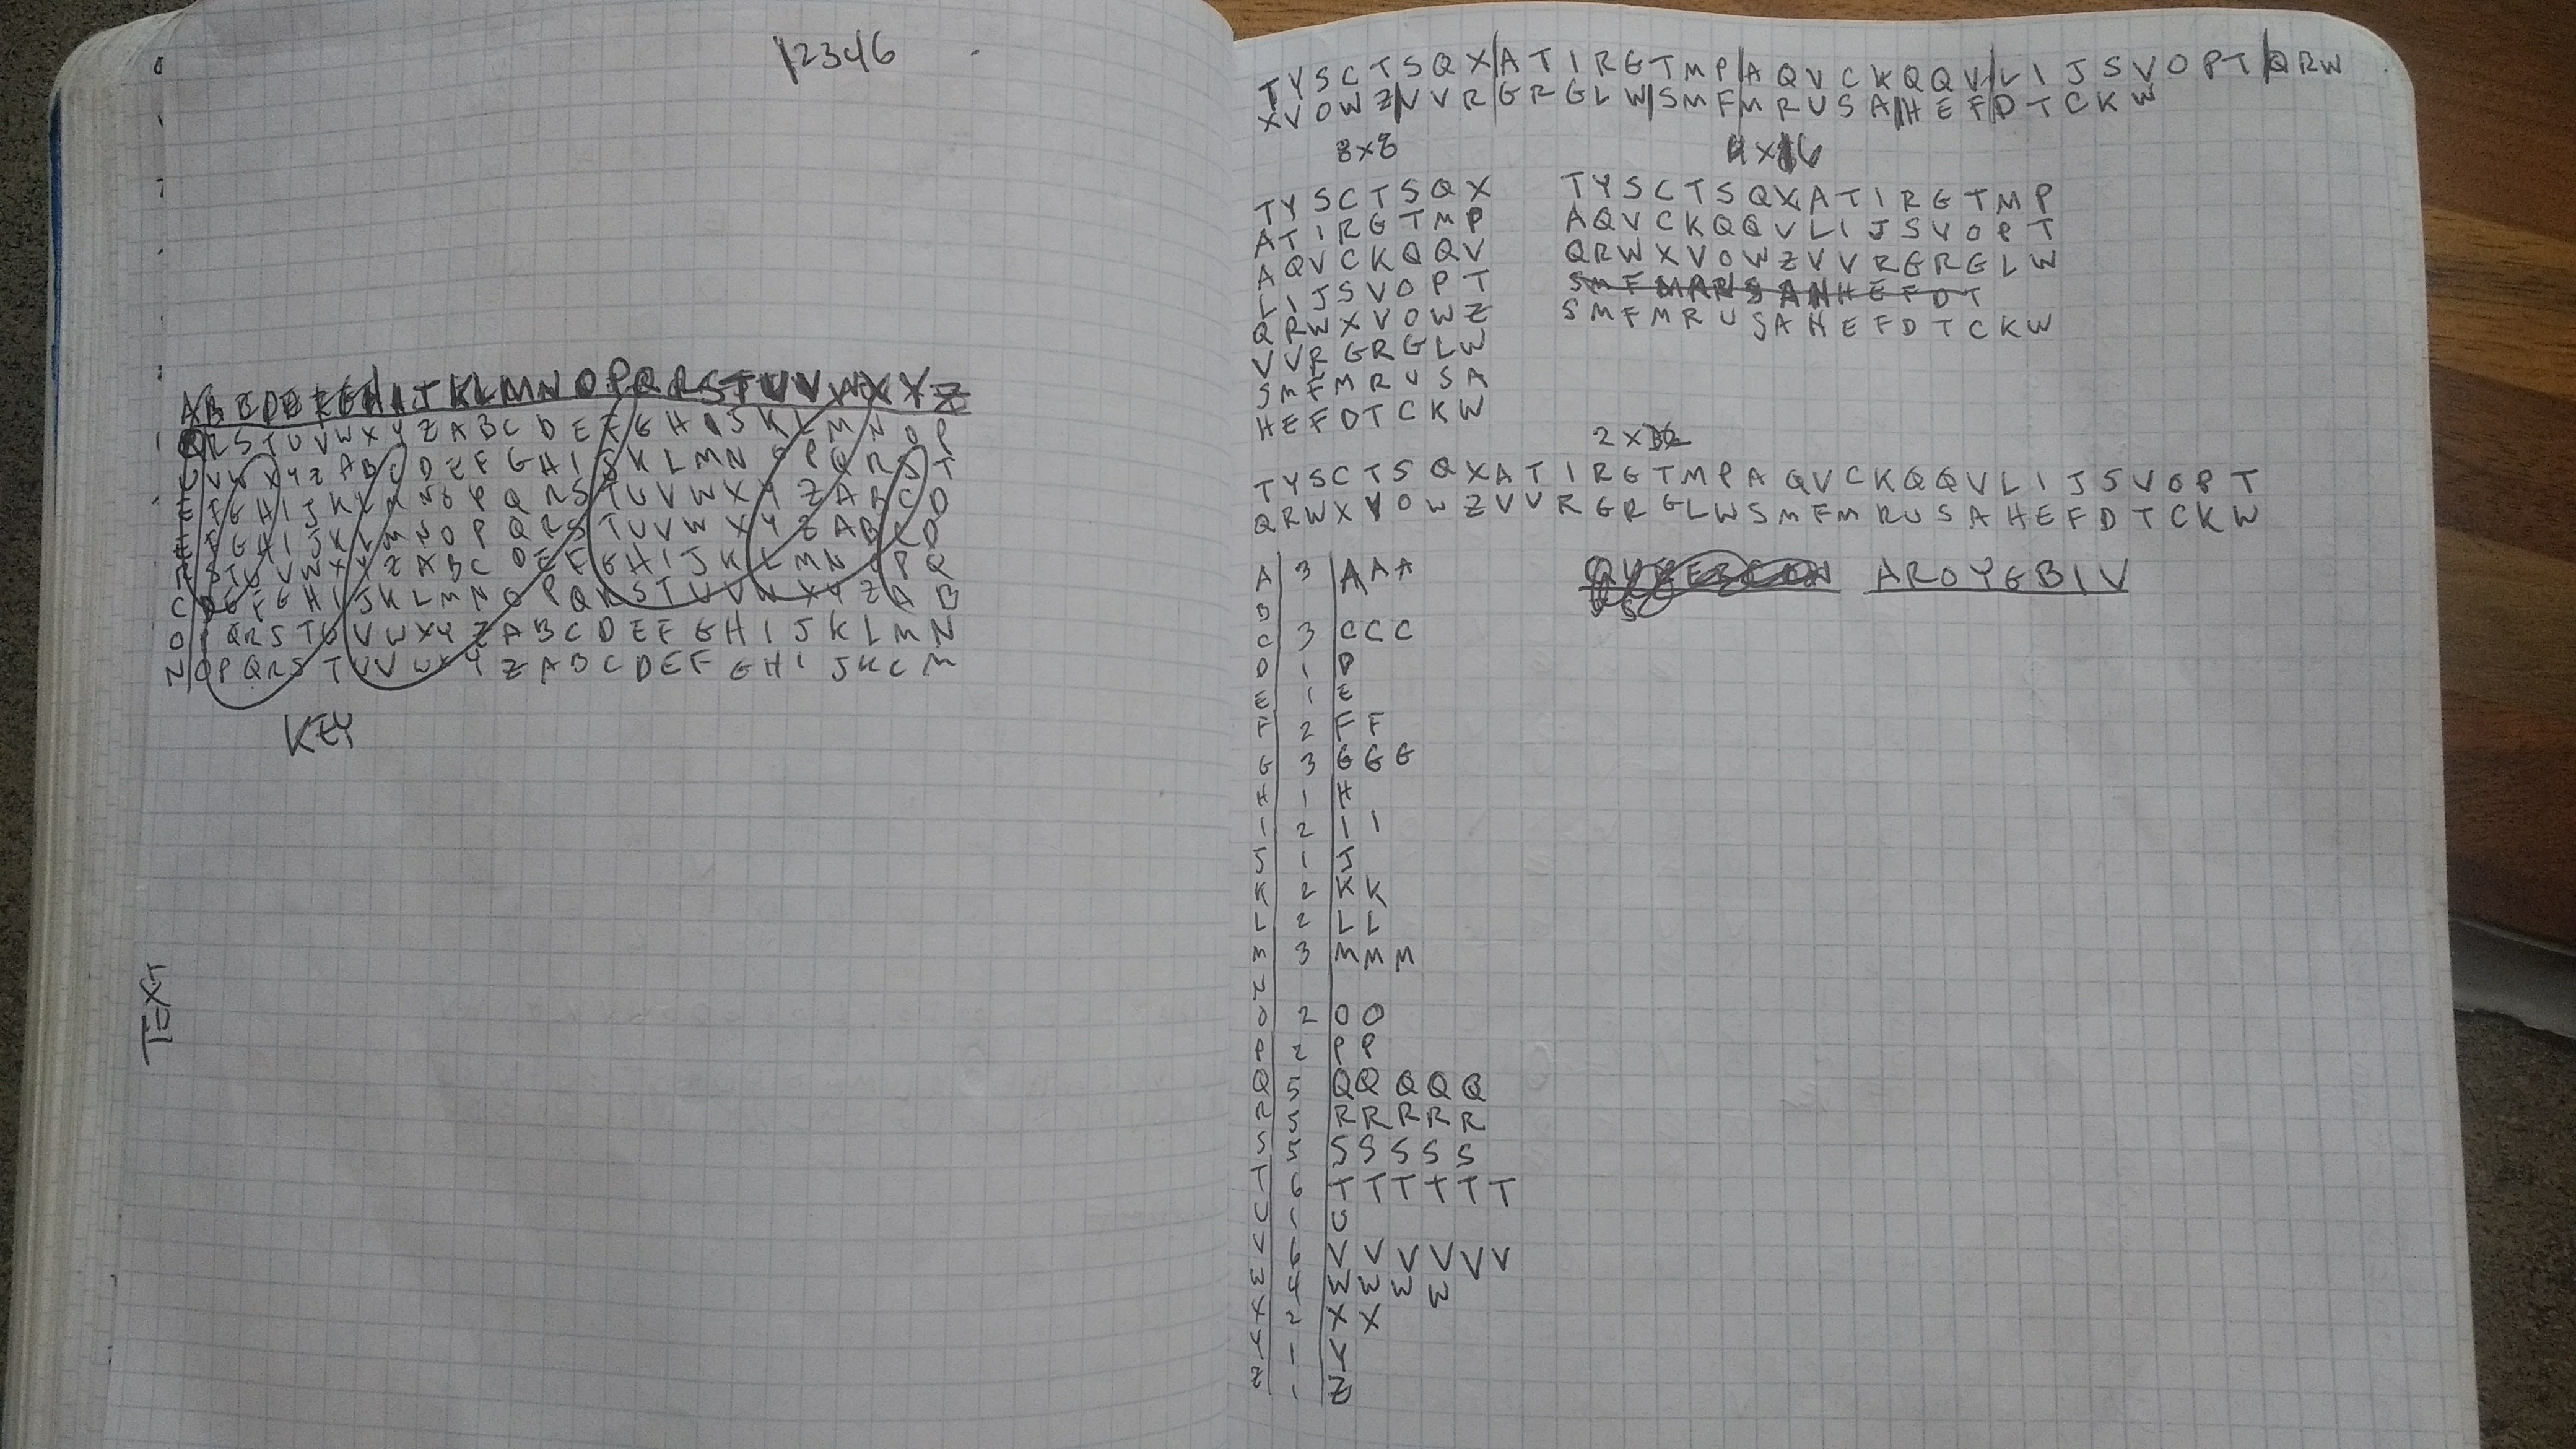 12346
ABCDEFGHIJKLMNOPQRSTUVWXYZ
QRSTUVWXYZABCDEFGHIJKLMNOP
UVWXYZABCDEFGHIJKLMNOPQRST
EFGHIJKLMNOPQRSTUVWXYZABCD
EFGHIJKLMNOPQRSTUVWXYZABCD
RSTUVWXYZABCDEFGHIJKLMNOPQ
CDEFGHIJKLMNOPQRSTUVWXYZAB
OPQRSTUVWXYZABCDEFGHIJKLMN
NOPQRSTUVWXYZABCDEFGHIJKLM
KEY
TEXT
TYSCTSQX|ATIRGTMP|AQVCKQQV|LIJSVOPT|QRW
XVOWZ|VVRGRGLW|SMFMRUSA|HEFDTCKW
8x8
TYSCTSQX
ATIRGTMP
AQVCKQQV
LIJSVOPT
QRWXVOWZ
VVRGRGLW
SMFMRUSA
HEFDTCKW
4x16
TYSCTSQXATIRGTMP
AQVCKQQVLIJSVOPT
QRWXVOWZVVRGRGLW
SMFMRUSAHEFDTCKW
2x32
TYSCTSQXATIRGTMPAQVCKQQVLIJSVOPT
QRWXVOWZVVRGRGLWSMFMRUSAHEFDTCKW
AROYGBIV
A 3 AAA
B
C 3 CCC
D 1 D
E 1 E
F 2 FF
G 3 GGG
H 1 H
I 2 II
J 1 J
K 2 KK
L 2 LL
M 3 MMM
N
O 2 OO
P 2 PP
Q 5 QQQQQ
R 5 RRRRR
S 5 SSSSS
T 6 TTTTTT
U 1 U
V 6 VVVVVV
W 4 WWWW
X 2 XX
Y 1 Y
Z 1 Z